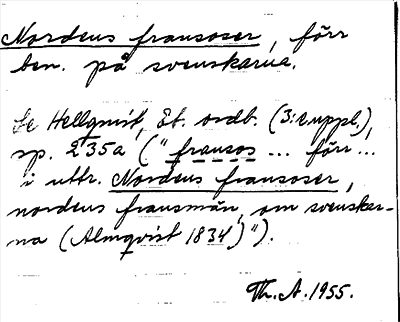 Nordens fransoser, förr
ben. på svenskarna.
Se Hellquist, Et. ordb. (3:e uppl.),
sp. 235a ("fransos ... förr ...
i uttr. Nordens fransoser,
nordens fransmän, om svenskar-
na (Almqvist 1834)").
Th. A. 1955.